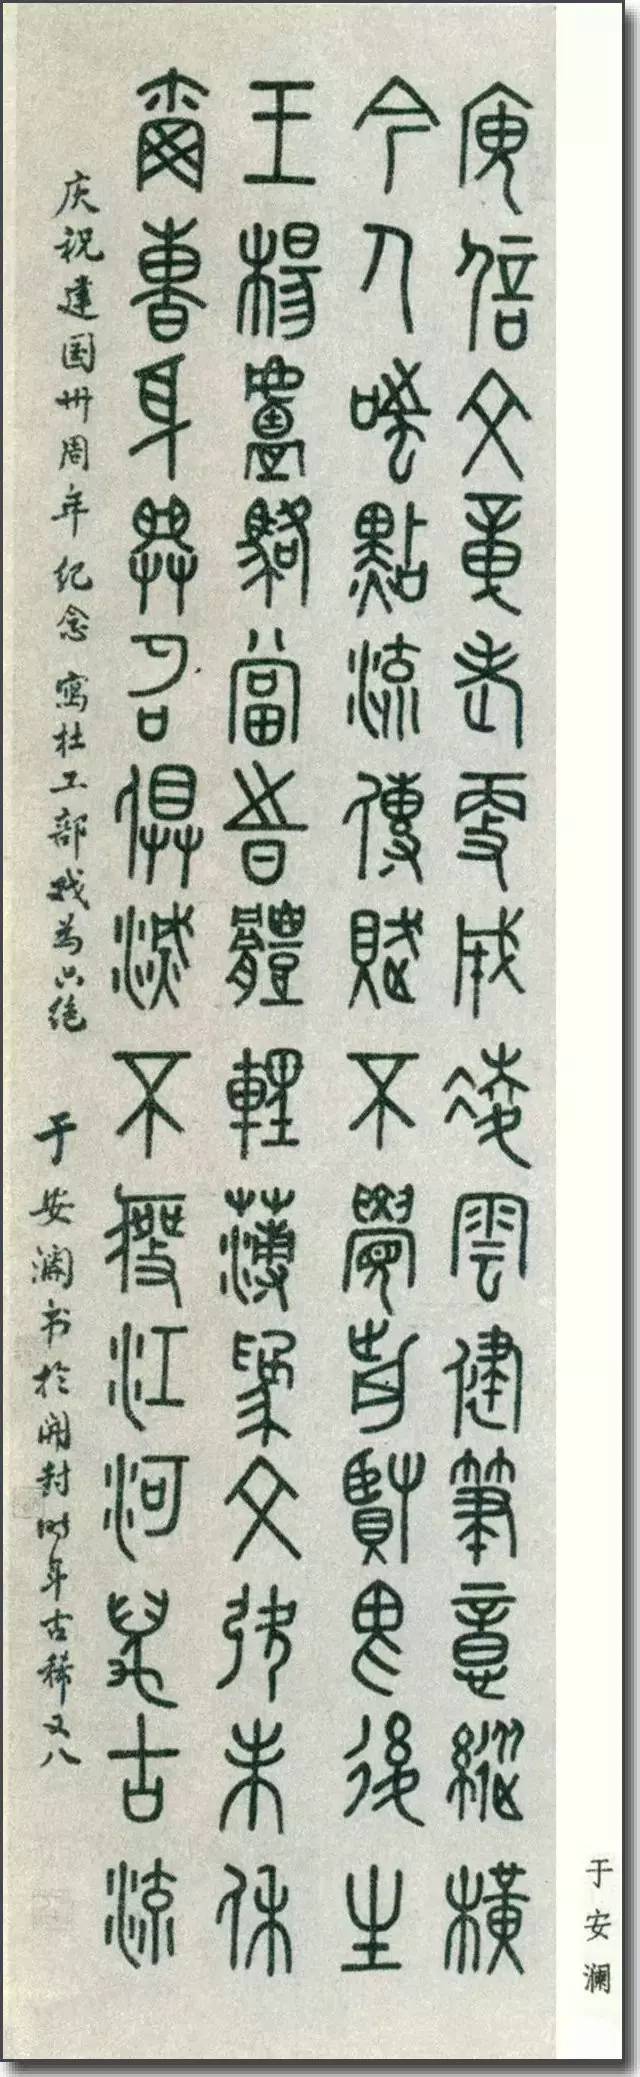 庾信文章老更成凌雲健筆意縱橫
今人嗤點流傳賦不覺前賢畏後生
王楊盧駱當時體輕薄為文弞未休
爾曹身與名俱滅不廢江河萬古流
庆祝建国卅周年纪念 寫杜工部戏为六绝 于安澜书於開封时年古稀又八
于安澜